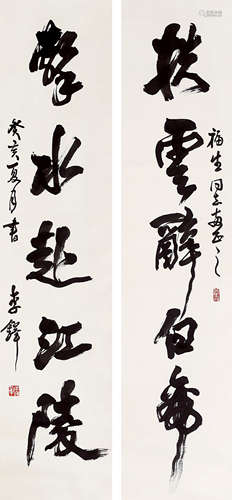 扶雲辭白帝
福生同志両正之
擊水赴江陵
癸亥夏月書
李鐸